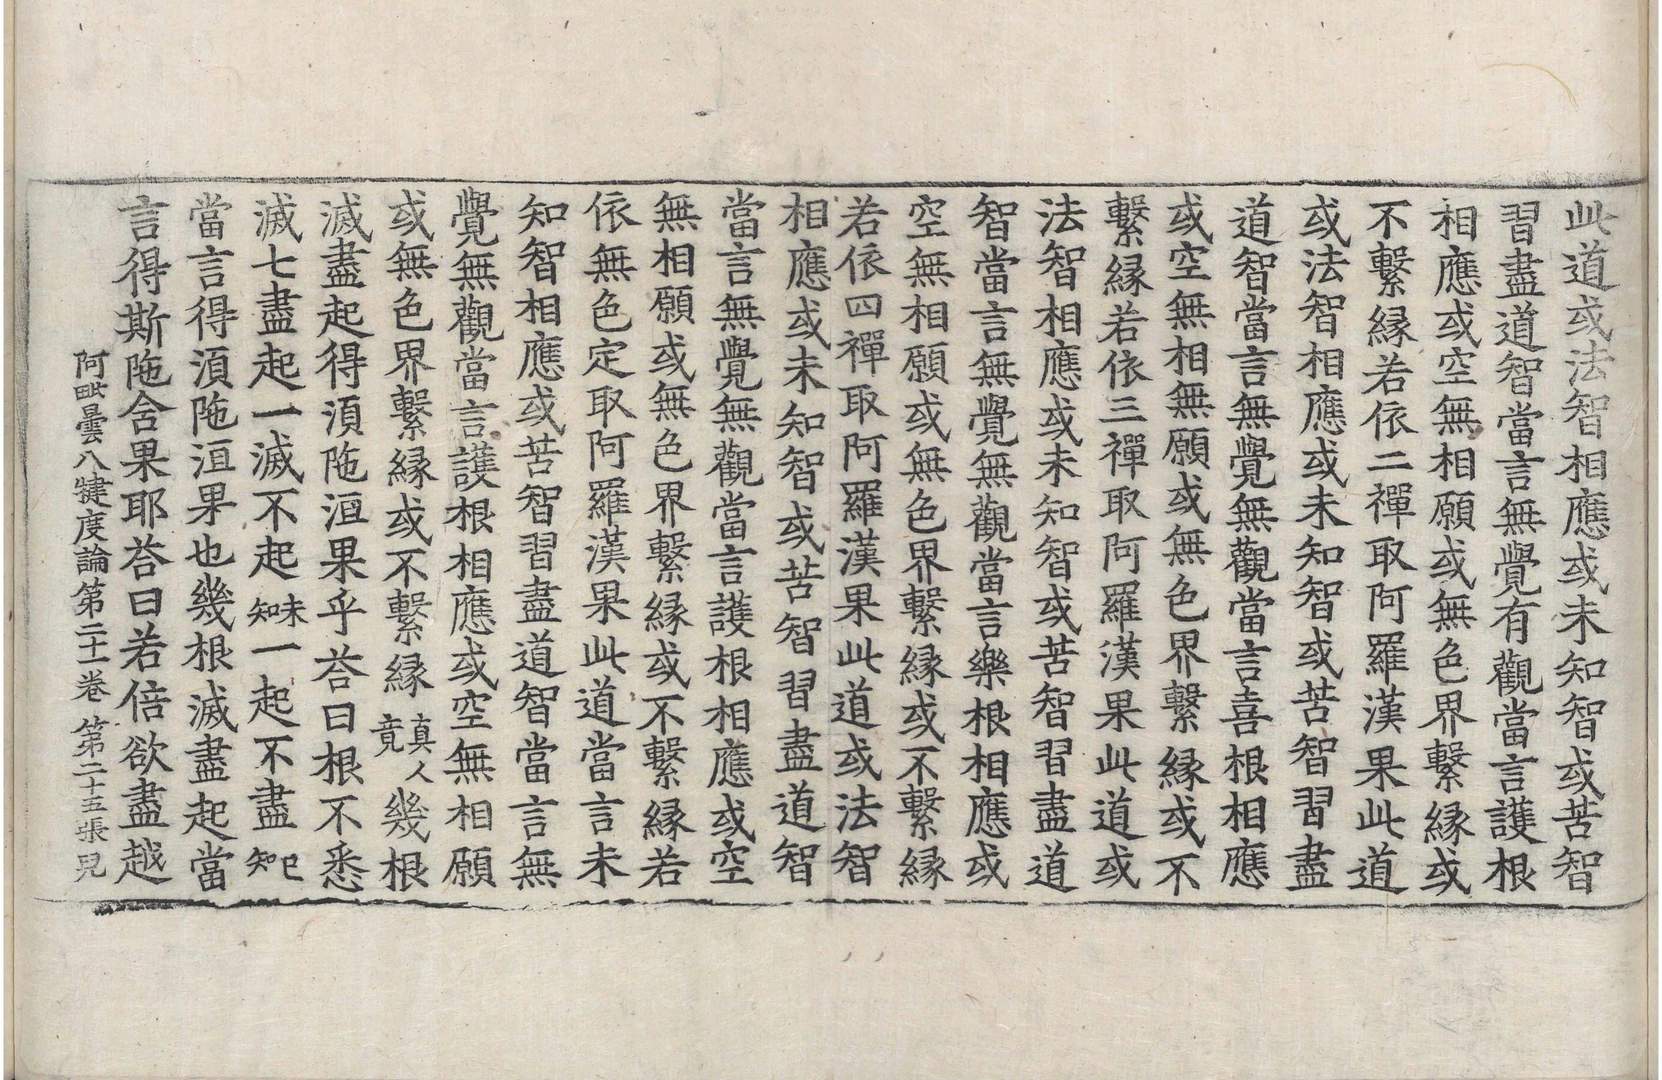 此道或法智相應或未知智或苦智
習盡道智當言無覺有觀當言護根
相應或空無相願或無色界繫縁或
不繫縁若依二禪取阿羅漢果此道
或法智相應或未知智或苦智習盡
道智當言無覺無觀當言喜根相應
或空無相無願或無色界繫縁或不
繫縁若依三禪取阿羅漢果此道或
法智相應或未知智或苦智習盡道
智當言無覺無觀當言樂根相應或
空無相願或無色界繫縁或不繫縁
若依四禪取阿羅漢果此道或法智
相應或未知智或苦智習盡道智
當言無覺無觀當言護根相應或空
無相願或無色界繫縁或不繫縁若
依無色定取阿羅漢果此道當言未
知智相應或苦智習盡道智當言無
覺無觀當言護根相應或空無相願
或無色界繫縁或不繫縁真人竟幾根
滅盡起得湏陁洹果乎荅曰根不悉
滅七盡起一滅不起未知一起不盡已知
當言得湏陁洹果也幾根滅盡起當
言得斯陁含果耶荅曰若倍欲盡越
阿毗曇八犍度論第二十一卷 第二十五張 兒